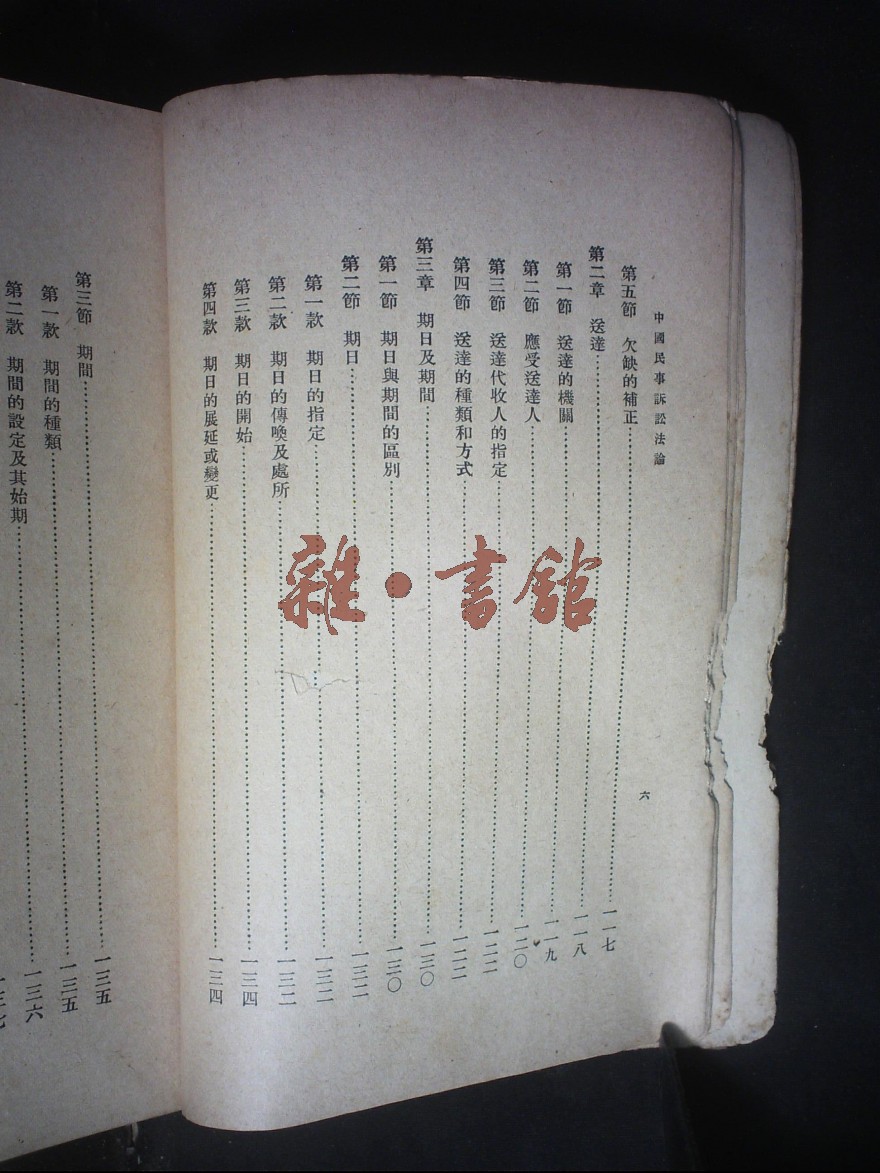 中國民事訴訟法論
六
第五節 欠缺的補正……一一七
第二章 送達……一一八
第一節 送達的機關……一一九
第二節 應受送達人……一二〇
第三節 送達代收人的指定……一二二
第四節 送達的種類和方式……一二二
第三章 期日及期間……一三〇
第一節 期日與期間的區別……一三〇
第二節 期日……一三二
第一款 期日的指定……一三二
第二款 期日的傳喚及處所……一三二
第三款 期日的開始……一三四
第四款 期日的展延或變更……一三四
第三節 期間……一三五
第一款 期間的種類……一三五
第二款 期間的設定及其始期……一三六
一三七
雜·書館